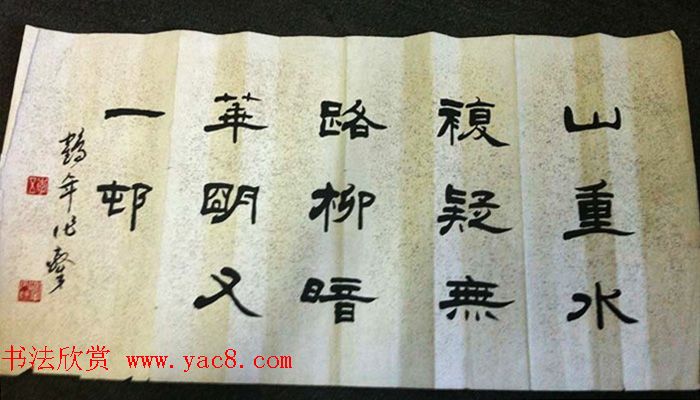 山重水
複疑無
路柳暗
華明又
一邨
鶴年
书法欣赏 www.yac8.com